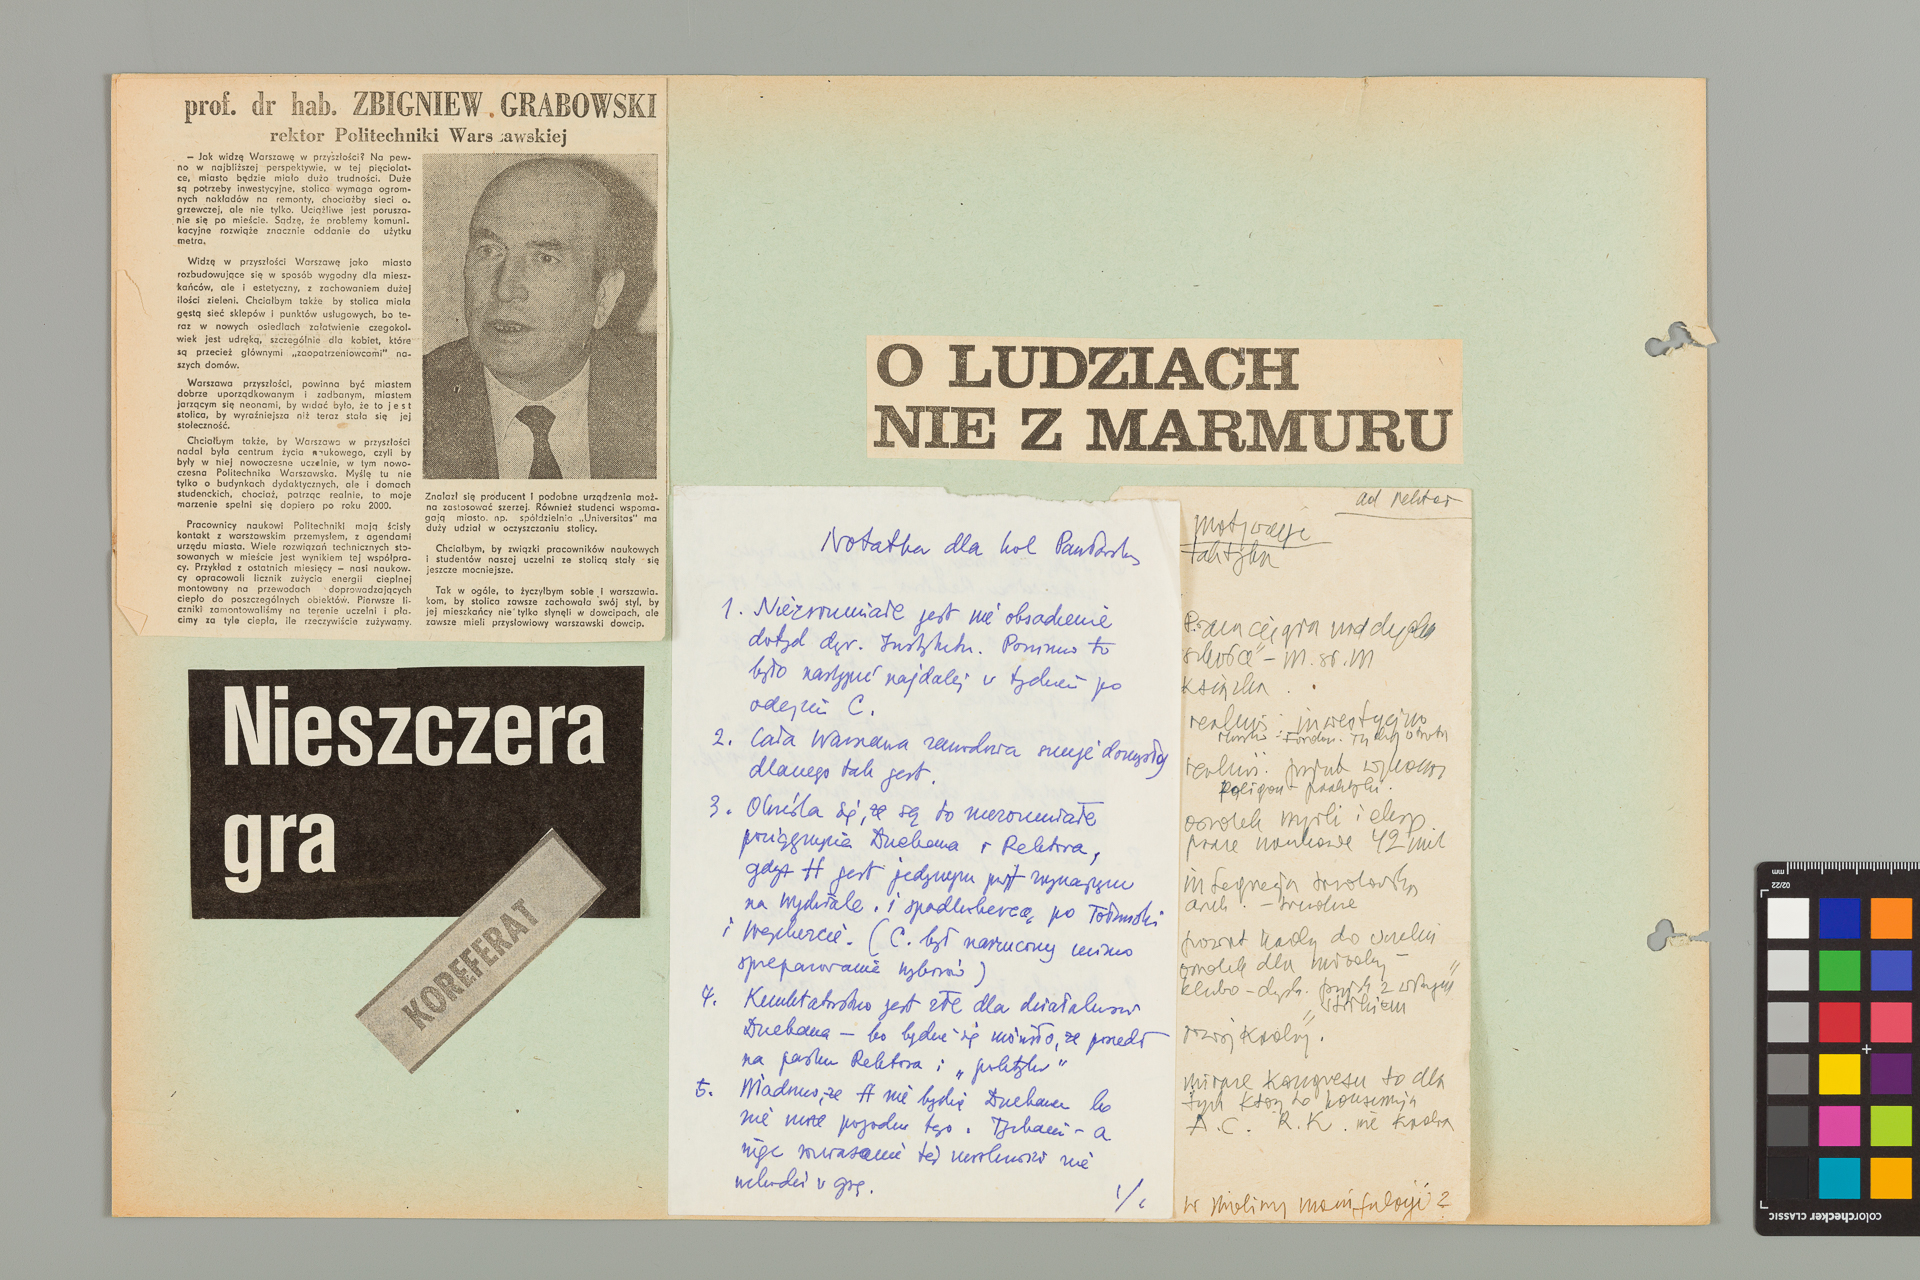 prof. dr hab. ZBIGNIEW GRABOWSKI
rektor Politechniki Warszawskiej
— Jok widzę Warszawę w przyszłości? Na pew-
no w najbliższej perspektywie, w tej pięciolat-
ce, miasto będzie miało dużo trudności. Duże
są potrzeby inwestycyjne, stolica wymaga ogrom-
nych nakładów na remonty, chociażby sieci o-
grzewczej, ale nie tylko. Uciążliwe jest porusza-
nie się po mieście. Sądzę, że problemy komuni-
kacyjne rozwiąże znacznie oddanie do użytku
metra.
Widzę w przyszłości Warszawę jako miasto
rozbudowujące się w sposób wygodny dla miesz-
kańców, ale i estetyczny, z zachowaniem dużej
ilości zieleni. Chciałbym także by stolica miała
gęstą sieć sklepów i punktów usługowych, bo te-
raz w nowych osiedlach załatwienie czegokol-
wiek jest udręką, szczególnie dla kobiet, które
są przecież głównymi „zaopatrzeniowcami" na-
szych domów.
Warszawa przyszłości, powinna być miastem
dobrze uporządkowanym i zadbanym, miastem
jarzącym się neonami, by widać było, że to jest
stolica, by wyraźniejsza niż teraz stała się jej
stołeczność.
Chciałbym także, by Warszawa w przyszłości
nadal była centrum życia naukowego, czyli by
były w niej nowoczesne uczelnie, w tym nowo-
czesna Politechnika Warszawska. Myślę tu nie
tylko o budynkach dydaktycznych, ale i domach
studenckich, chociaż, patrząc realnie, to moje
marzenie spełni się dopiero po roku 2000.
Pracownicy naukowi Politechniki mają ścisły
kontakt z warszawskim przemysłem, z agendami
urzędu miasta. Wiele rozwiązań technicznych sto-
sowanych w mieście jest wynikiem tej współpra-
cy. Przykład z ostatnich miesięcy — nasi naukow-
cy opracowali licznik zużycia energii cieplnej
montowany na przewodach doprowadzających
ciepło do poszczególnych obiektów. Pierwsze li-
czniki zamontowaliśmy na terenie uczelni i pła-
cimy za tyle ciepła, ile rzeczywiście zużywamy.
Znalazł się producent i podobne urządzenia moż-
na zastosować szerzej. Również studenci wspoma-
gają miasto. np. spółdzielnia „Universitas" ma
duży udział w oczyszczaniu stolicy.
Chciałbym, by związki pracowników naukowych
i studentów naszej uczelni ze stolicą stały się
jeszcze mocniejsze.
Tak w ogóle, to życzyłbym sobie i warszawia-
kom, by stolica zawsze zachowała swój styl, by
jej mieszkańcy nie tylko słynęli w dowcipach, ale
zawsze mieli przysłowiowy warszawski dowcip.
O LUDZIACH
NIE Z MARMURU
Nieszczera
gra
KOREFERAT
Notatka dla kol
1. Niezrozumiałe jest nie obsadzenie
dotąd dyr. Instytutu. Powinno to
było nastąpić najdalej w tydzień po
odejściu C.
2. Cała Warszawa zawodowa snuje domysły
dlaczego tak jest.
3. Określa się, że są to niezrozumiałe
posunięcia Dziekana i Rektora,
gdyż H jest jedynym
na wydziale. i spadkobiercą po
i (C. był narzucony mimo
spreparowania wyborów)
4. jest złe dla działalności
Dziekana — bo będzie się mówiło, że poszedł
na pasku Rektora i „polityki"
5. Wiadomo, że H nie będzie Dziekanem bo
nie może pogodzić tego z Tychami - a
więc rozważanie tej możliwości nie
wchodzi w grę.
ad rektor
motywacje
taktyka
M. st. M
książka
poligon praktyki.
ośrodek myśli i eksp
prace naukowe 42 mil
integracja środowiska
arch. — trudne
powrót kadry do uczelni
ośrodek dla młodzieży —
rozwój kadry.
A.C. R.K. nie
mm
02/22
colorchecker CLASSIC